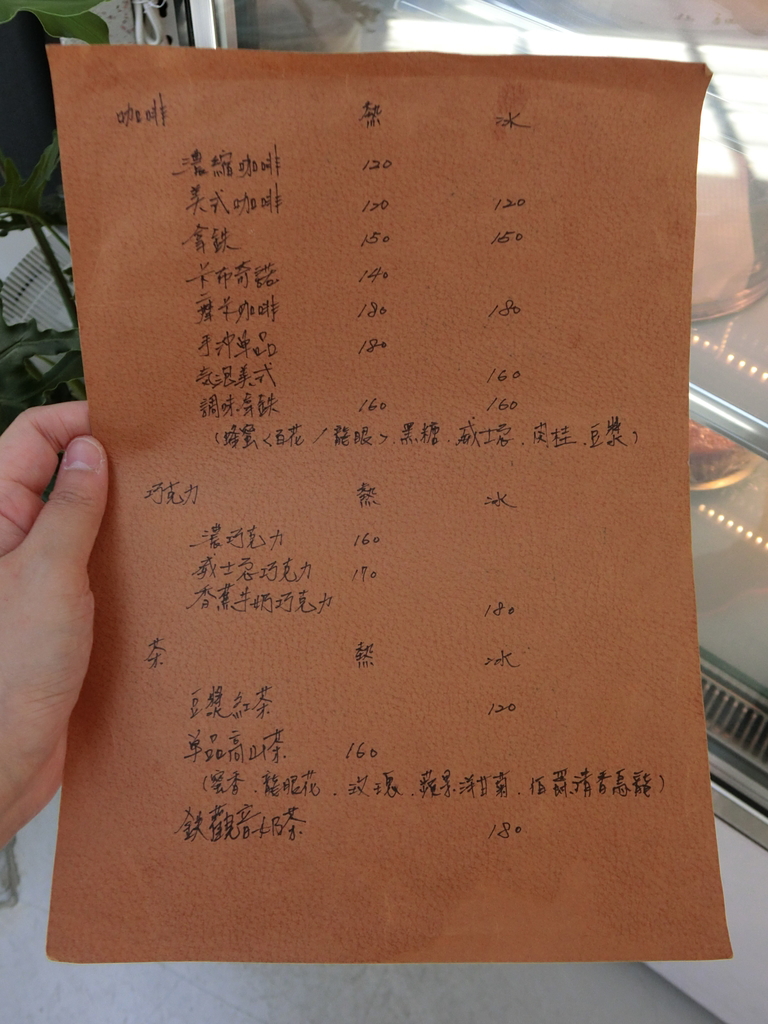 咖啡 熱 冰
濃縮咖啡 120
美式咖啡 120 120
拿鉄 150 150
卡布奇諾 140
摩卡咖啡 180 180
手沖單品 180
氮混美式 160
調味拿鉄 160 160
(蜂蜜<百花/龍眼>.黑糖.威士忌.肉桂.豆漿)
巧克力 熱 冰
濃巧克力 160
威士忌巧克力 170
香蕉牛奶巧克力 180
茶 熱 冰
豆漿紅茶 120
單品高山茶 160
(蜜香.龍眼花.玫瑰.蘋果洋甘菊.伯爵清香烏龍)
鉄觀音奶茶 180